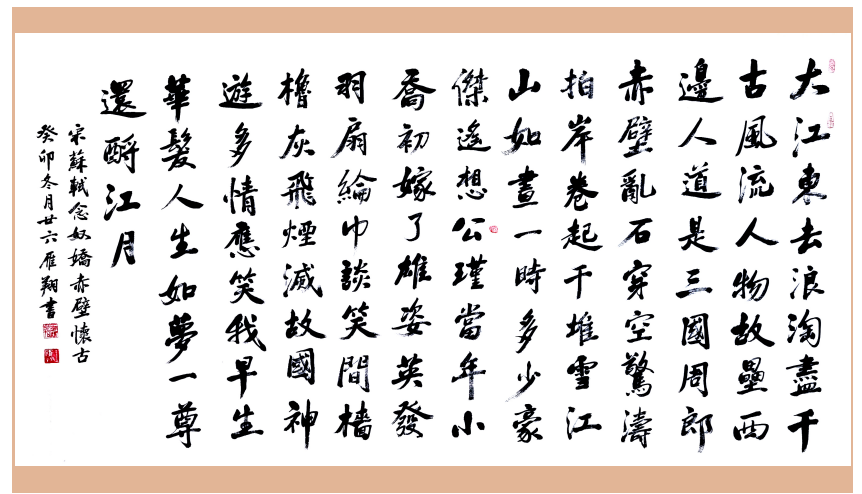 大江東去浪淘盡千
古風流人物故壘西
邊人道是三國周郎
赤壁亂石穿空驚濤
拍岸卷起千堆雪江
山如畫一時多少豪
傑遙想公瑾當年小
喬初嫁了雄姿英發
羽扇綸巾談笑間檣
櫓灰飛煙滅故國神
遊多情應笑我早生
華髮人生如夢一尊
還酹江月
宋蘇軾念奴嬌赤壁懷古
癸卯冬月廿六雁翔書